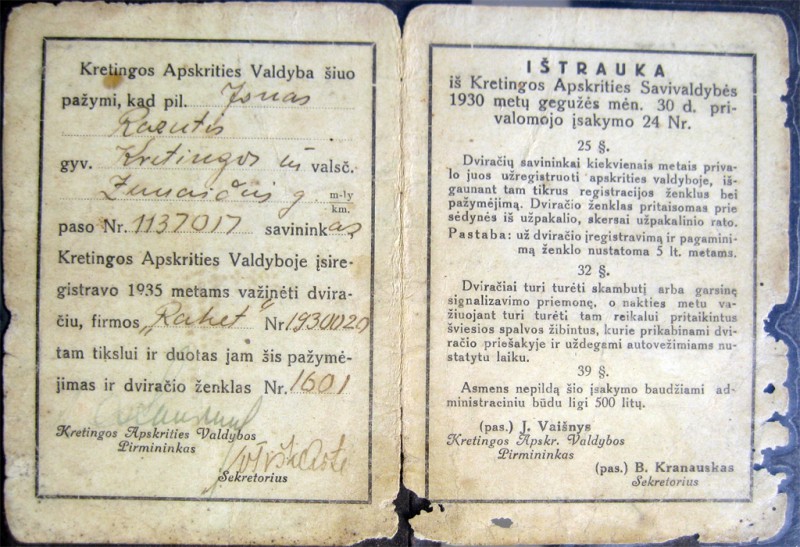 Kretingos Apskrities Valdyba šiuo
pažymi, kad pil. Jonas
Razutis
gyv. Kretingos m valsč.
g. m-ly
km.
paso Nr. 1137017 savininkas,
Kretingos Apskrities Valdyboje įsire-
gistravo 1935 metams važinėti dvira-
čiu, firmos „Rahet“ Nr 1930020
tam tikslui ir duotas jam šis pažymė-
jimas ir dviračio ženklas Nr. 1601
Kretingos Apskrities Valdybos
Pirmininkas
Sekretorius
IŠTRAUKA
iš Kretingos Apskrities Savivaldybės
1930 metų gegužės mėn. 30 d. pri-
valomojo įsakymo 24 Nr.
25 §.
Dviračių savininkai kiekvienais metais priva-
lo juos užregistruoti apskrities valdyboje, iš-
gaunant tam tikrus registracijos ženklus bei
pažymėjimą. Dviračio ženklas pritaisomas prie
sėdynės iš užpakalio, skersai užpakalinio rato.
Pastaba: už dviračio įregistravimą ir pagamini-
mą ženklo nustatoma 5 lt. metams.
32 §.
Dviračiai turi turėti skambutį arba garsinę
signalizavimo priemonę, o nakties metu va-
žiuojant turi turėti tam reikalui pritaikintus
šviesios spalvos žibintus, kurie prikabinami dvi-
račio priešakyje ir uždegami autovežimiams nu-
statytu laiku.
39 §.
Asmens nepildą šio įsakymo baudžiami ad-
ministraciniu būdu ligi 500 litų.
(pas.) J. Vaišnys
Kretingos Apskr. Valdybos
Pirmininkas
(pas.) B. Kranauskas
Sekretorius